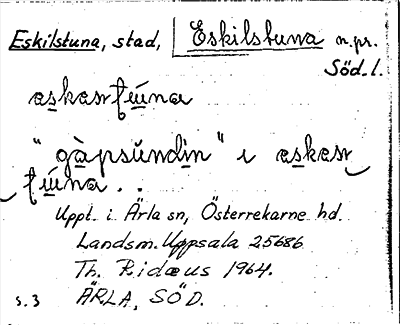 Eskilstuna, stad, Eskilstuna n.pr.
Söd.l.
"gàpsúndin" i
Uppt. i Ärla sn, Österrekarne hd.
Landsm. Uppsala 25686
Th. Ridæus 1964.
s. 3 ÄRLA, SÖD.